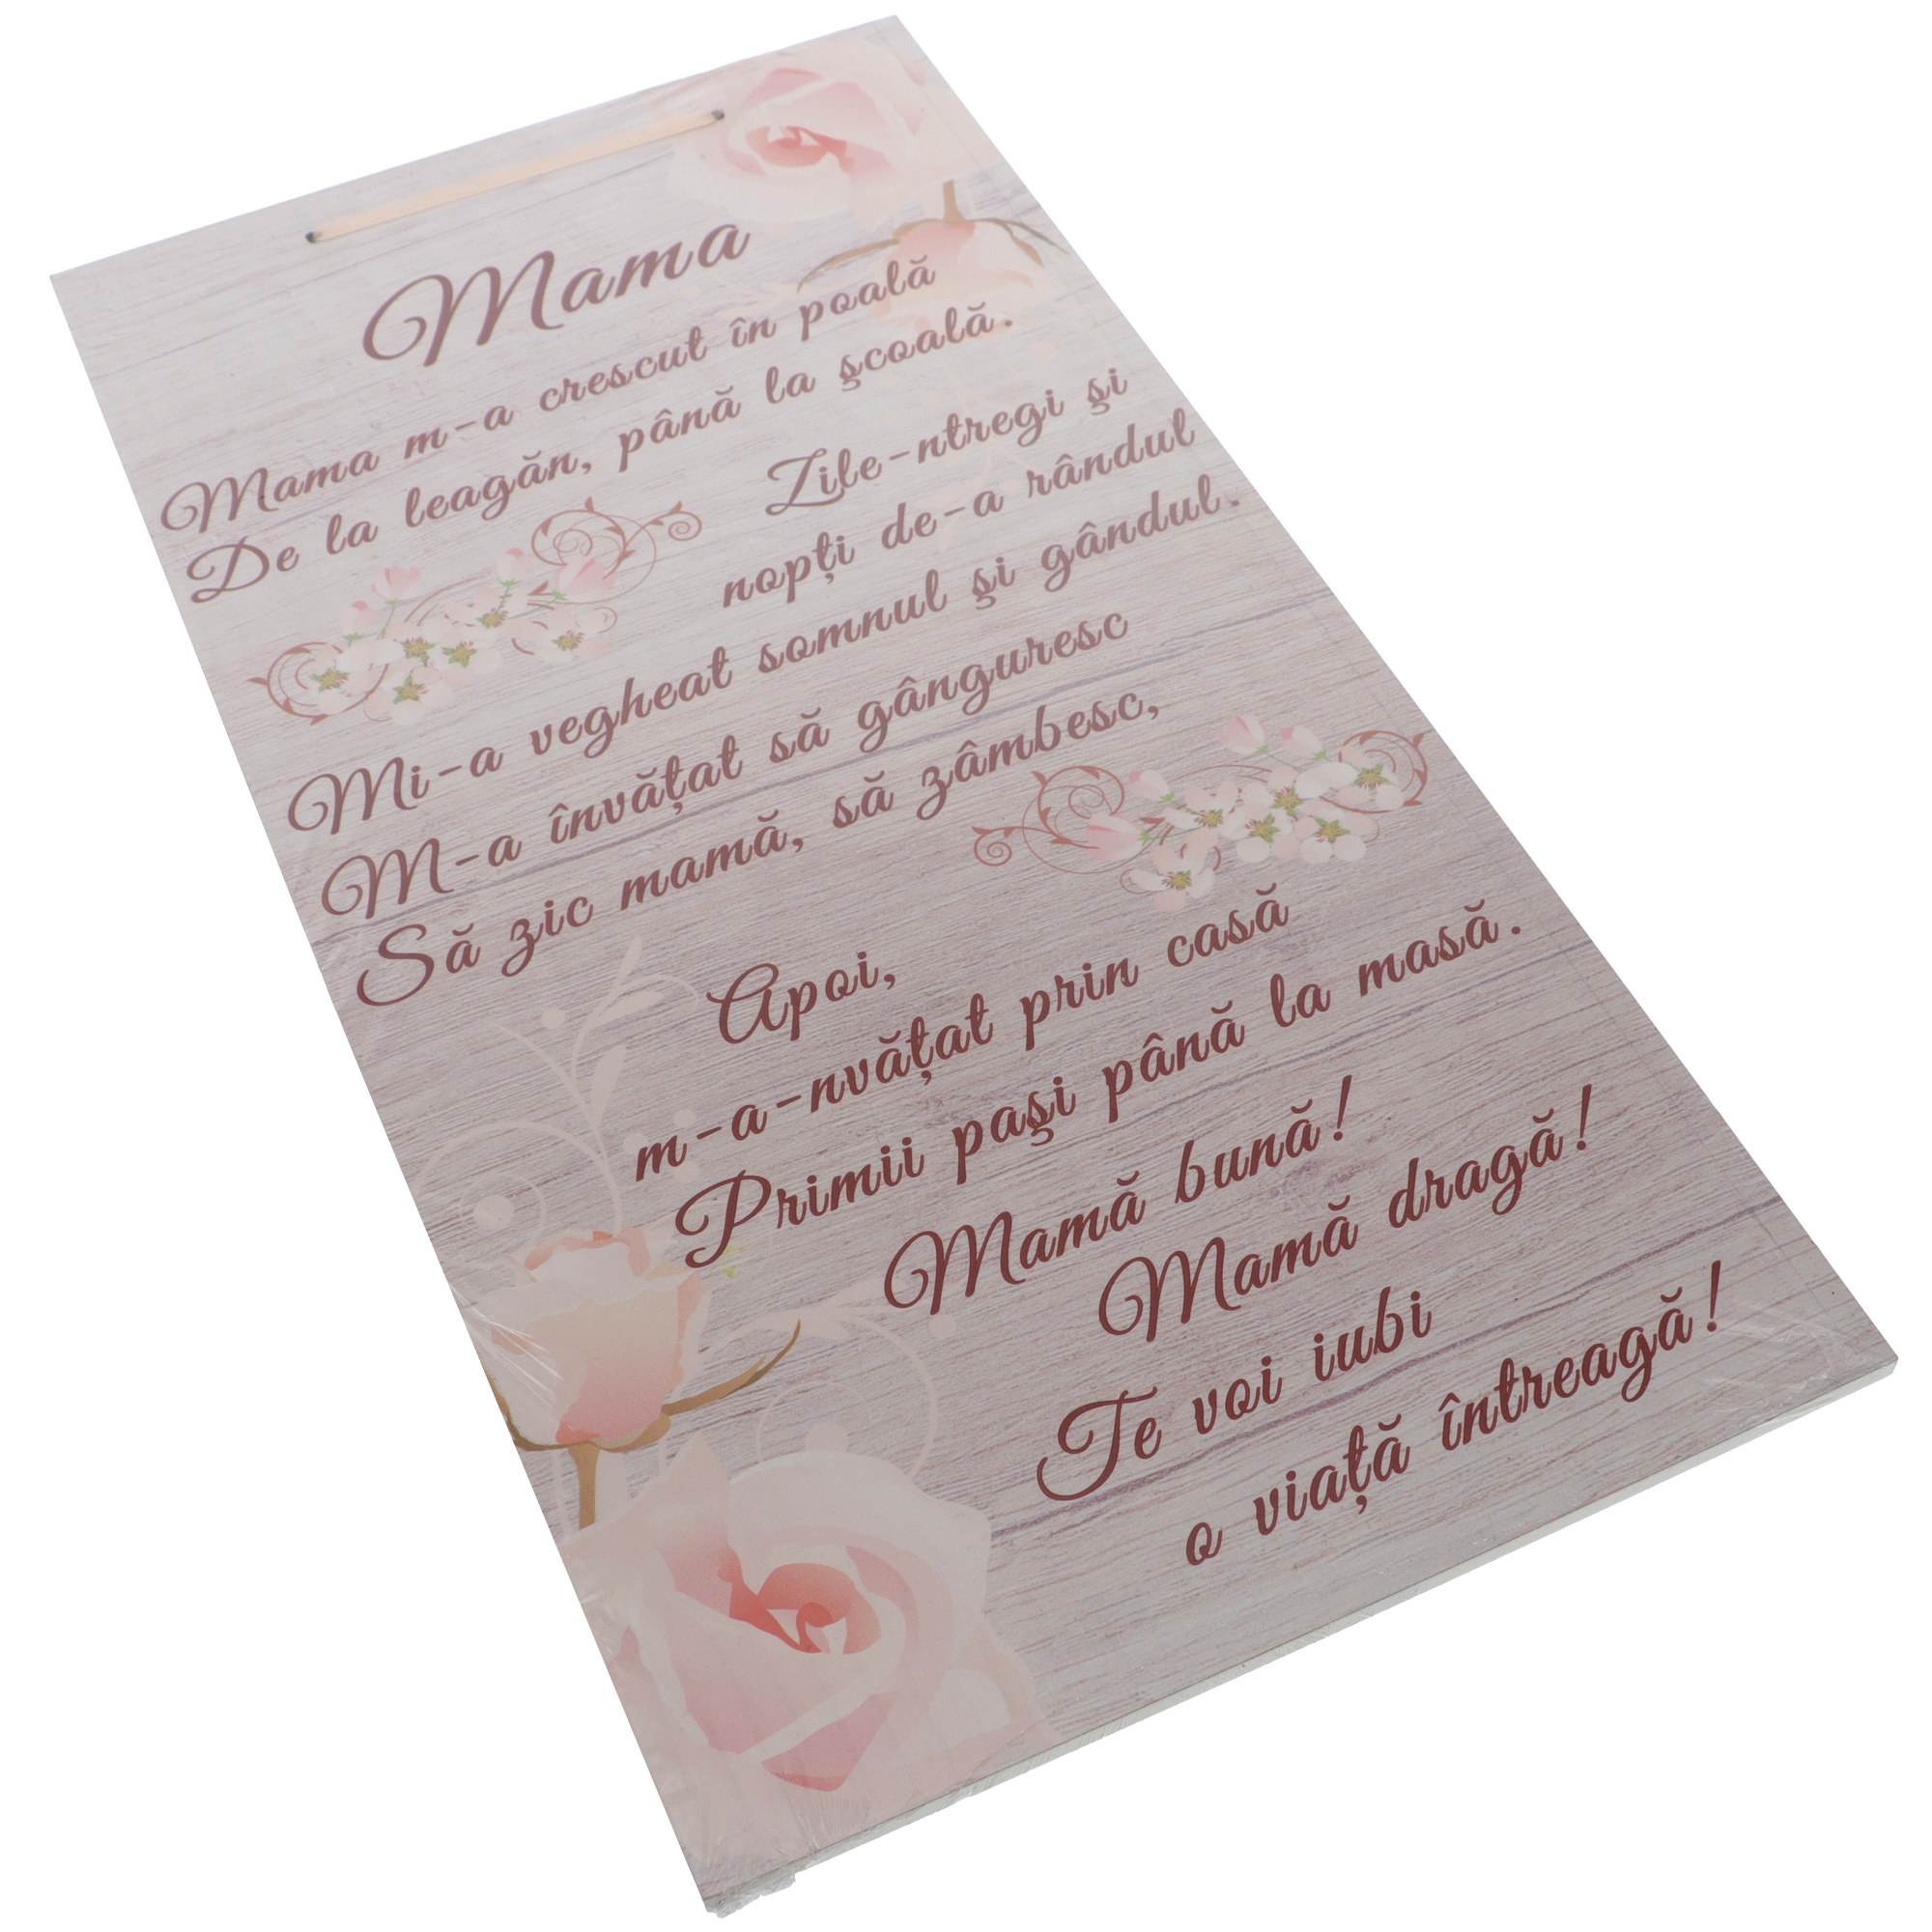 Mama
Mama m-a crescut în poală
De la leagăn, până la şcoală.
Zile-ntregi şi
nopţi de-a rândul
Mi-a vegheat somnul şi gândul.
M-a învăţat să gânguresc
Să zic mamă, să zâmbesc,
Apoi,
m-a-nvăţat prin casă
Primii paşi până la masă.
Mamă bună!
Mamă dragă!
Te voi iubi
o viaţă întreagă!